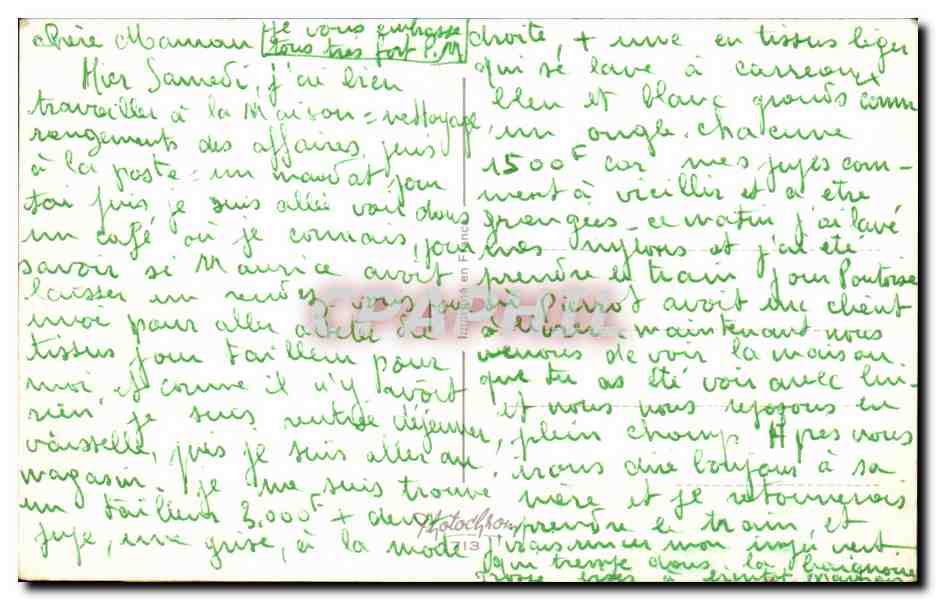 chère Maman
Je vous embrasse
tous très fort P.M
Hier Samedi, j'ai bien
travailler à la Maison = nettoyage
rengements des affaires, puis
à la poste = un mandat pour
toi puis je suis allée voir dans
un café où je connais, pour
savoir si Maurice avait
laisser un rendez-vous pour
moi pour aller
tissus pour tailleur pour
moi et comme il n'y avait
rien je suis rentrée déjeuner,
vaisselle, puis je suis aller au
magasin. je me suis trouvé
un tailleur 3.000F + deux
jupe, une grise, à la mode
droite, + une en tissus léger
qui se lave à carreaux
bleu et blanc grands comm
un ongle. chacune
1500F car mes jupes com-
ment à vieillir et a être
ce matin j'ai lavé
mes nylons et j'ai été
prendre le train pour Pontoise
où Pierrot avait un client
maintenant nous
venons de voir la maison
que tu as été voir avec lui-
et nous nous reposons en
plein champ Apres nous
irons dire bonjour à sa
mère et je retournerais
prendre le train et
j'irais rincer mon impér vert
qui trempe dans la baignoire
à bientôt Maman
Imprimé en France
CPAPHIL
Photochrom
713